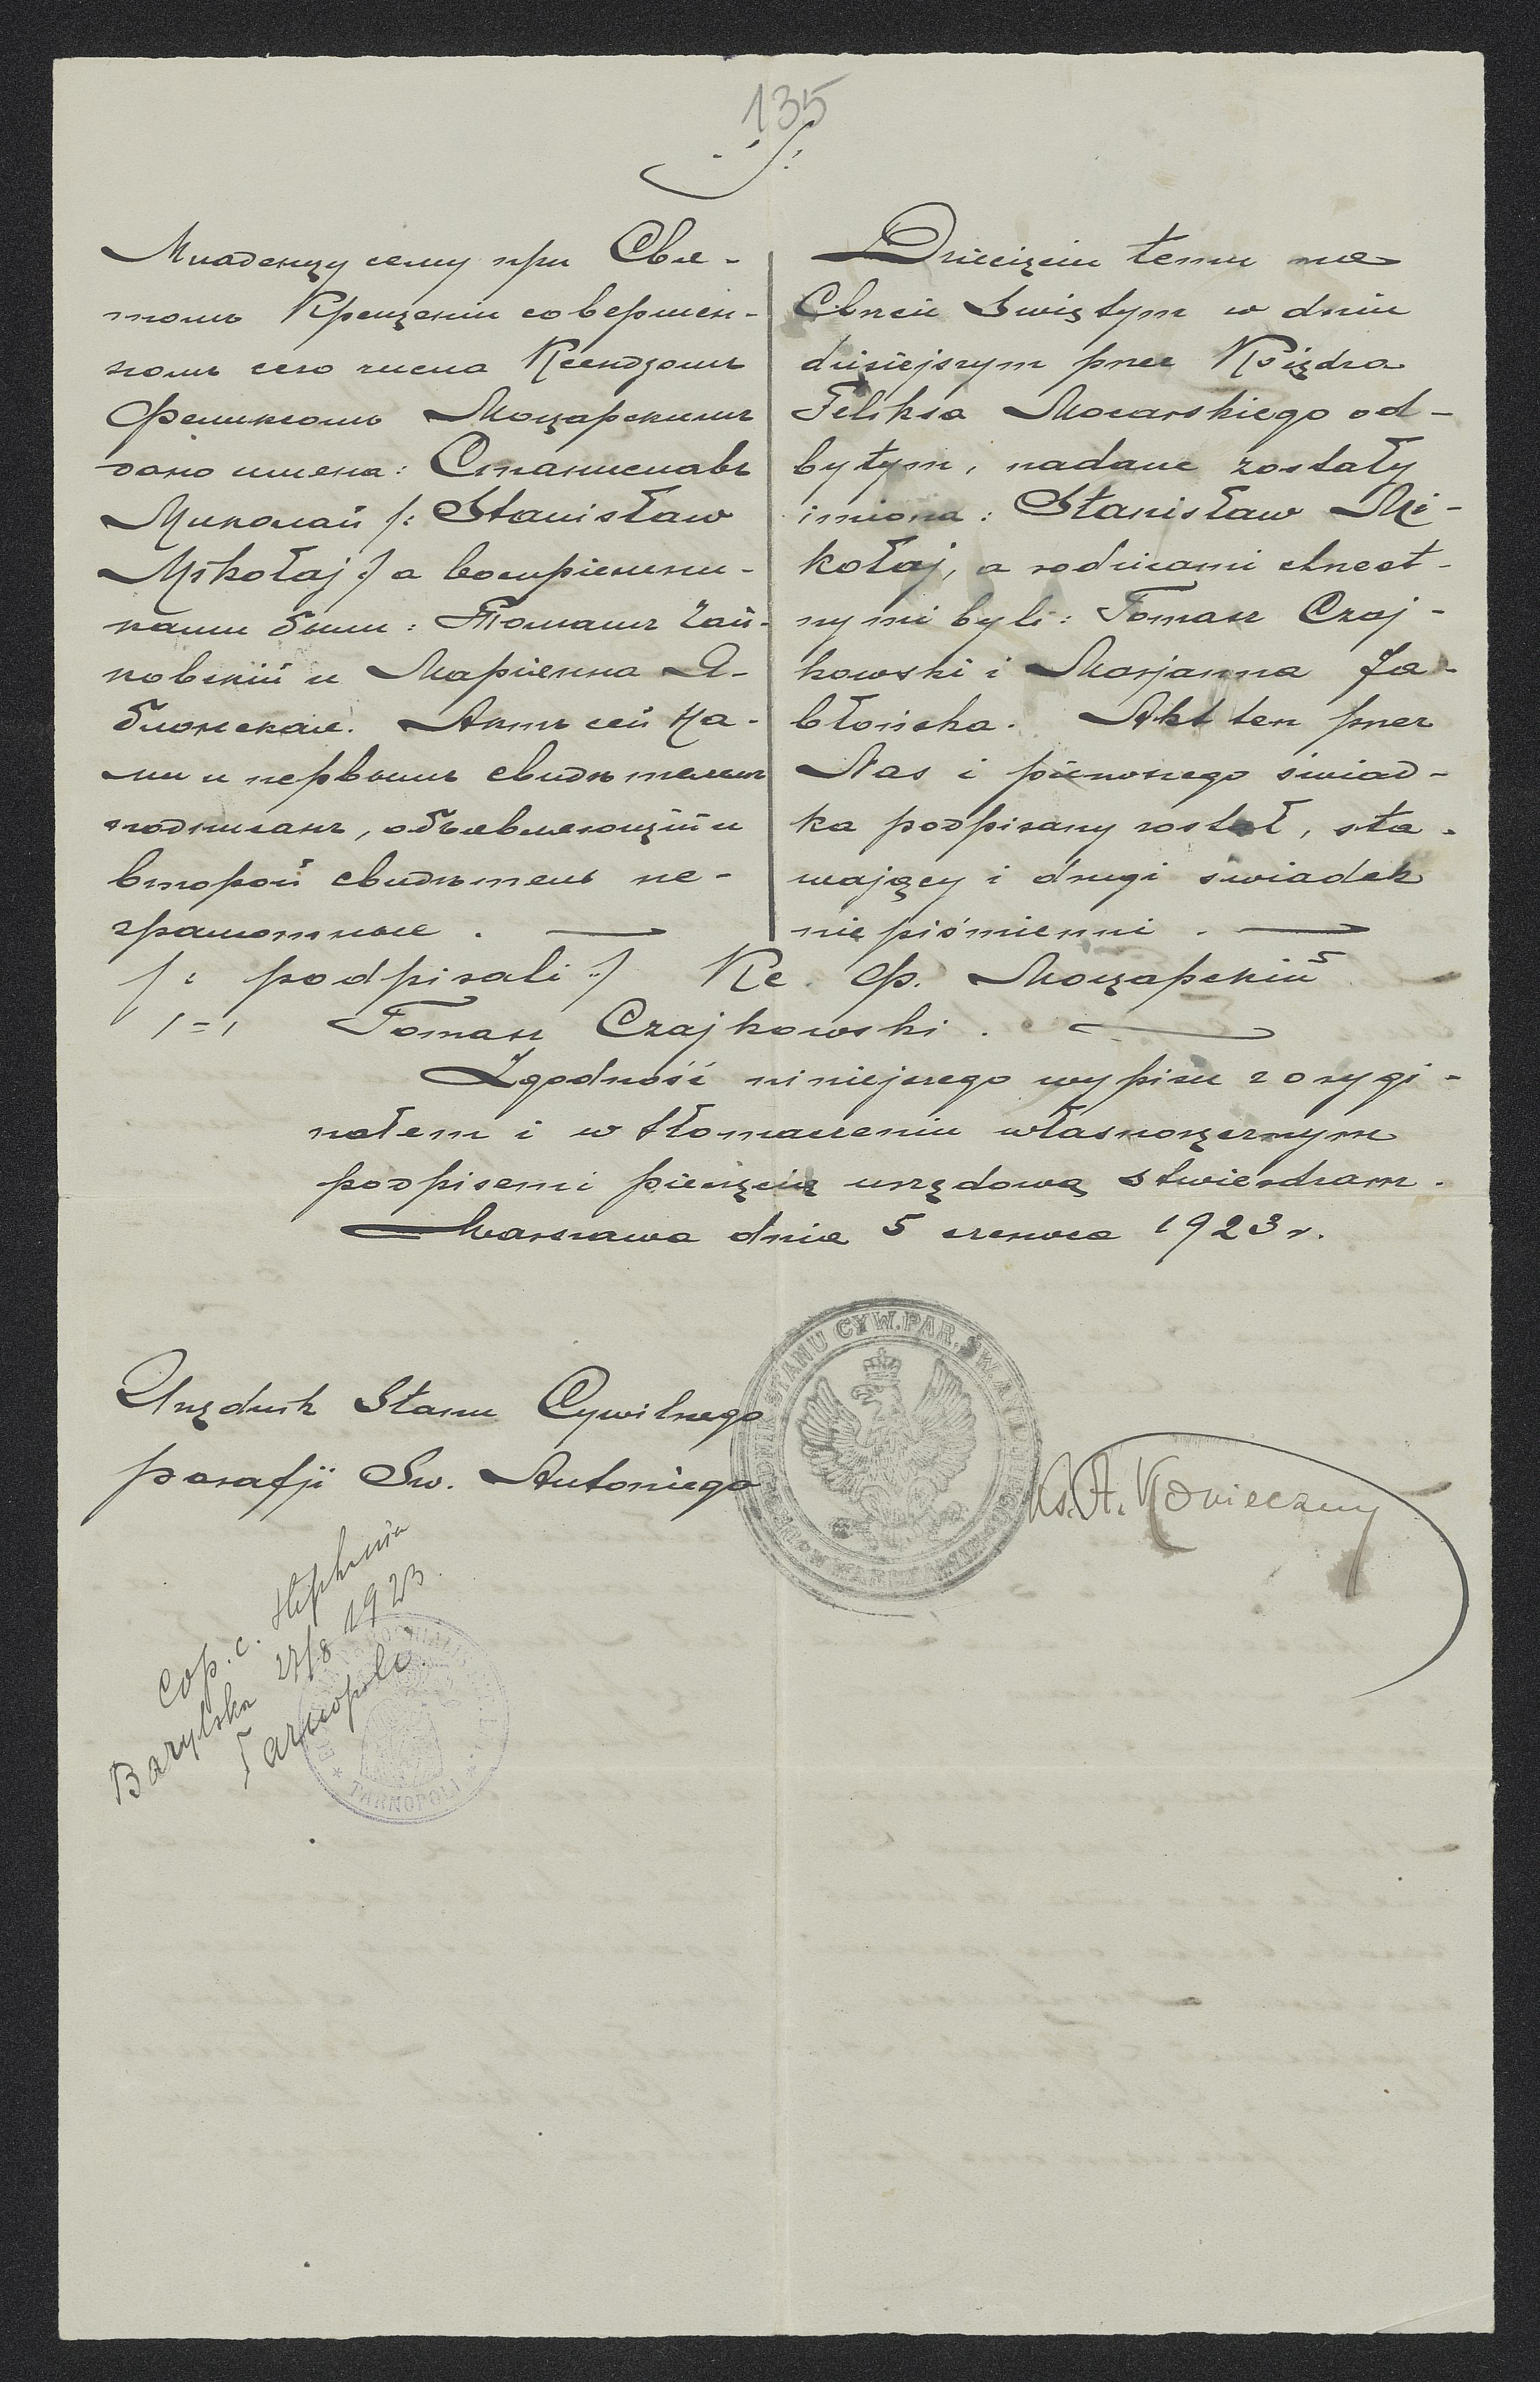 135
Младенцу сему при Свя-
томъ Крещеніи совершен-
номъ сего числа Ксендзомъ
Феликсомъ Моцарскимъ
дано имена: Станиславъ
Миколай /: Stanisław
Mikołaj :/ а воспріемни-
ками были: Томашъ Чай-
ковскій и Маріанна Я-
блонская. Актъ сей На-
ми и первымъ свидѣтелемъ
подписанъ, объявляющій и
второй свидѣтель не-
грамотные.
Dziecięciu temu na
Chrzcie Świętym w dniu
dzisiejszym przez Księdza
Feliksa Mocarskiego od-
bytym, nadane zostały
imiona: Stanisław Mi-
kołaj, a rodzicami chrzest-
nymi byli: Tomasz Czaj-
kowski i Marjanna Ja-
błońska. Akt ten przez
Nas i pierwszego świad-
ka podpisany został, sta-
wający i drugi świadek
niepiśmienni.
/: podpisali :/ Кс. Ф. Моцарскій
/-/ Tomasz Czajkowski.
Zgodność niniejszego wypisu z orygi-
nałem i w tłomaczeniu własnoręcznym
podpisem i pieczęcią urzędową stwierdzam.
Warszawa dnia 5 czerwca 1923 r.
Urzędnik Stanu Cywilnego
parafji Św. Antoniego
STANU CYW. PAR. ŚW. ANT
Ks. A. Konieczny
Cop. c. Stephania
Barylska 27/8 1923.
Tarnopoli.
TARNOPOLI